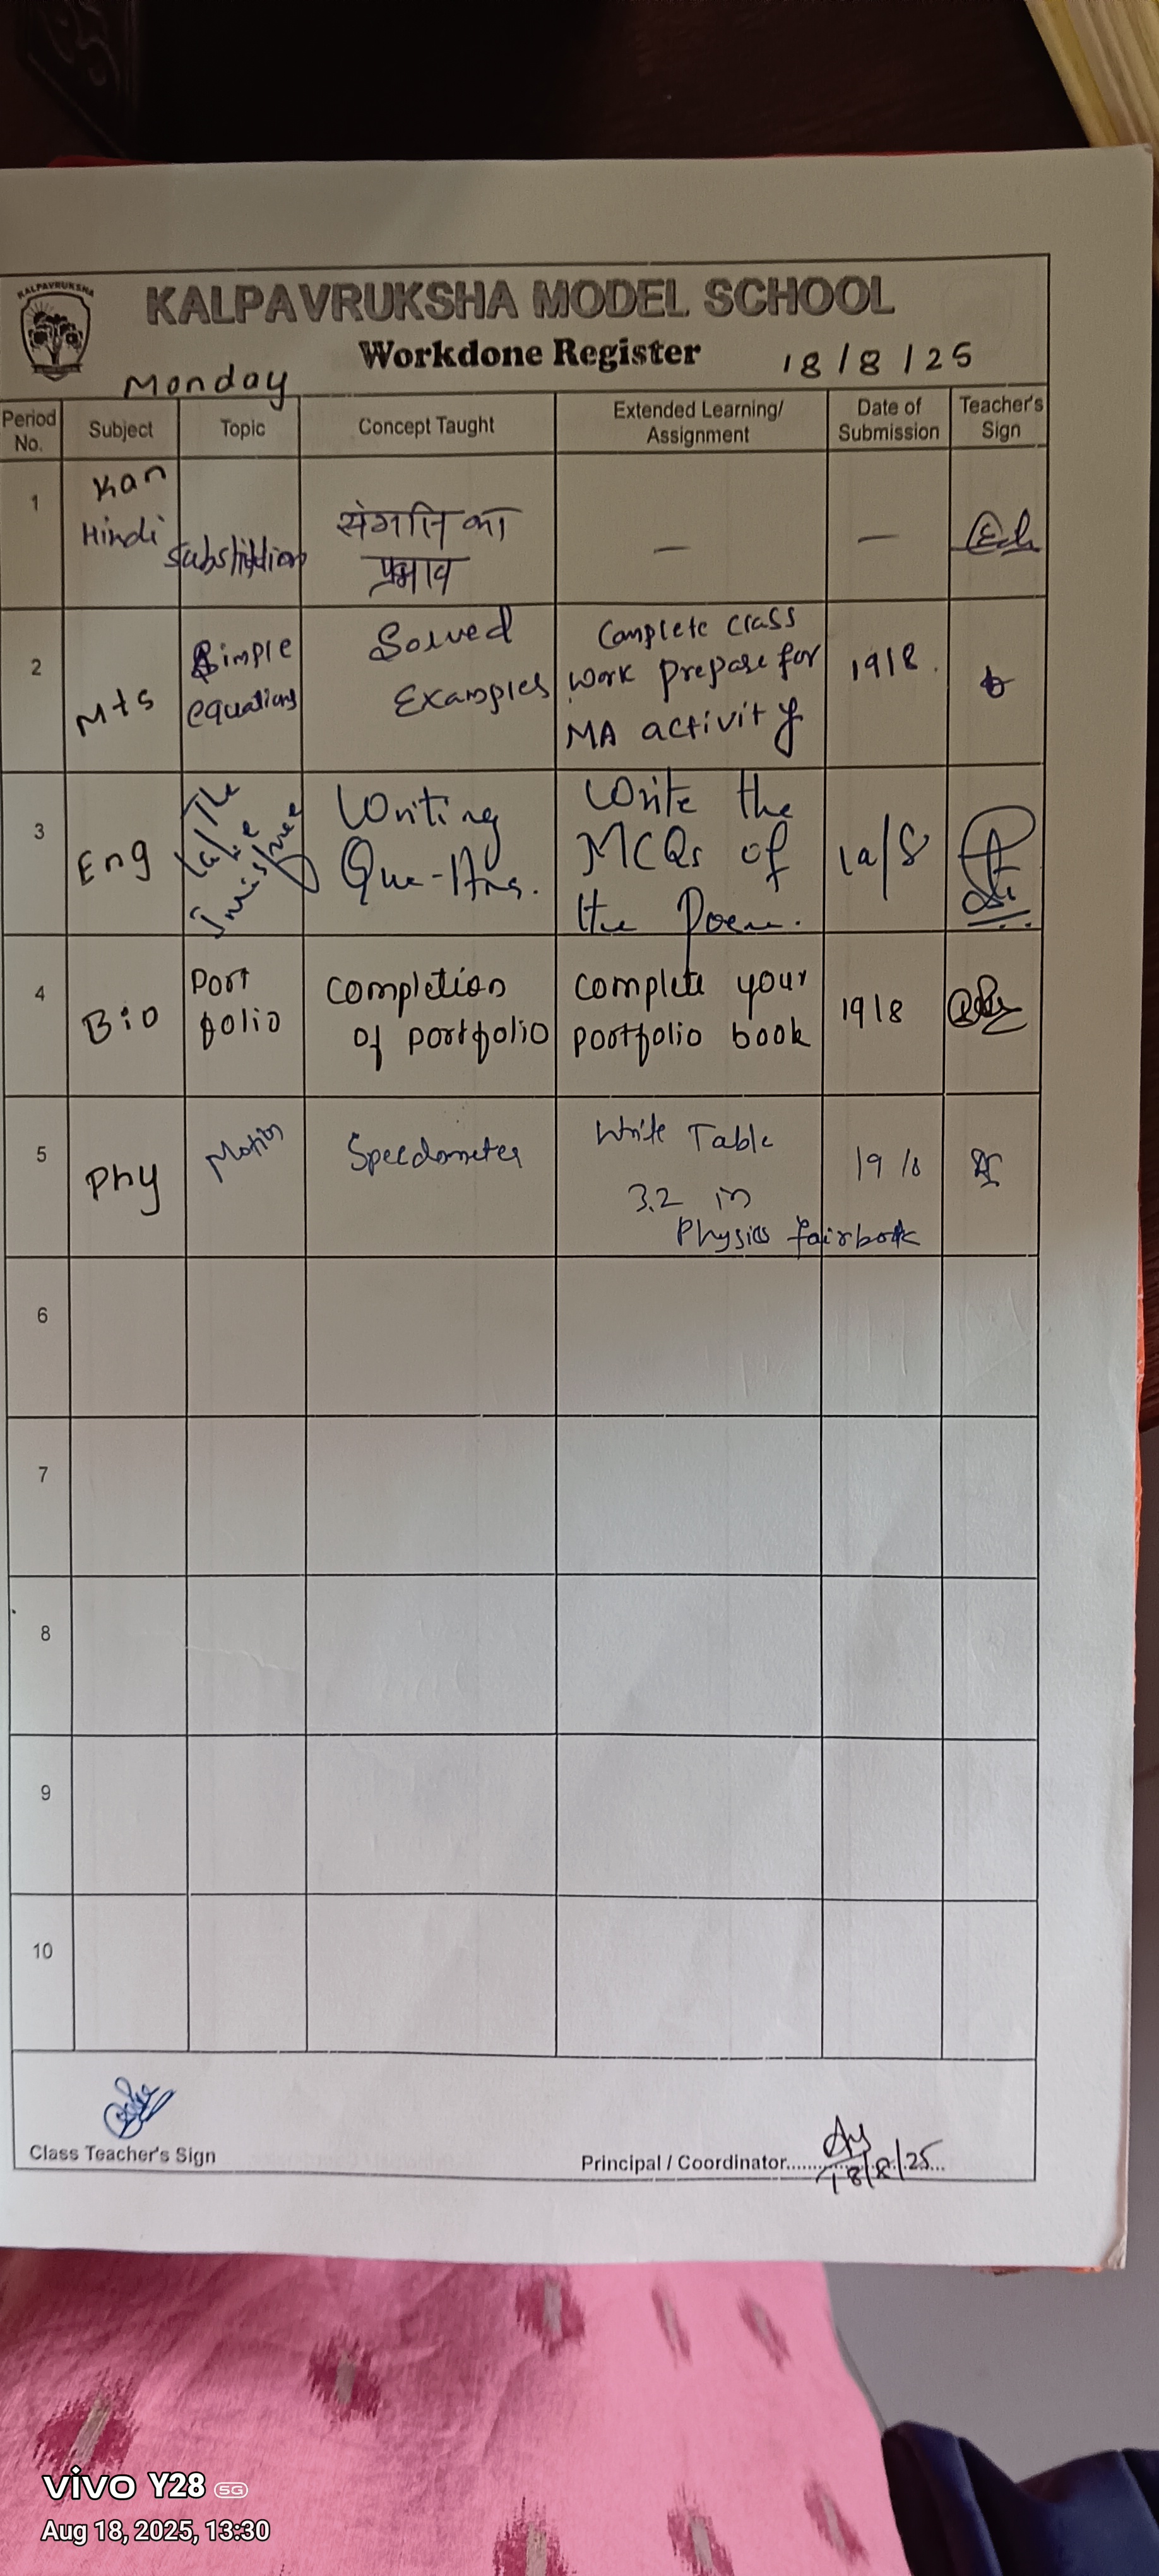 KALPAVRUKSHA
KALPAVRUKSHA MODEL SCHOOL
Workdone Register
Monday
18/8/25
Period No.
Subject
Topic
Concept Taught
Extended Learning/
Assignment
Date of
Submission
Teacher's
Sign
1
Kan
Hindi
संगति का
प्रभाव
—
—
2
Mts
Simple
equations
Solved
Examples
Complete class
work prepare for
MA activity
19/8.
3
Eng
The
Lake
Innisfree
Writing
Que-Ans.
Write the
MCQs of
the Poem.
19/8
4
Bio
Port
folio
Completion
of portfolio
complete your
portfolio book
19/8
5
Phy
Motion
Speedometer
Write Table
3.2 in
Physics fairbook
19/8
6
7
8
9
10
Class Teacher's Sign
Principal / Coordinator
18/8/25
vivo Y28 5G
Aug 18, 2025, 13:30